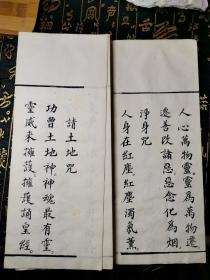 人心萬物靈靈為萬物遷
遷善改諸惡惡念化為烟
淨身咒
人身在紅塵紅塵濁氣薰
請土地咒
功曹土地神神魂最有靈
靈威來擁護擁護誦皇經